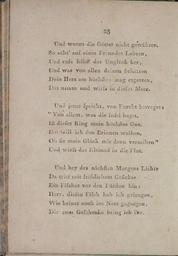 Und wenns die Götter nicht gewähren,
So acht' auf eines Freundes Lehren,
Und rufe selbst das Unglück her,
Und was von allen deinen Schätzen
Dein Herz am höchsten mag ergetzen,
Das nimm und wirfs in dieses Meer.
Und jener spricht, von Furcht beweget:
"Von allem, was die Insel heget,
Ist dieser Ring mein höchstes Gut.
Ihn will ich den Erinnen weihen,
Ob sie mein Glück mir dann verzeihen"
Und wirft das Kleinod in die Flut.
Und bey des nächsten Morgens Lichte
Da tritt mit fröhlichem Gesichte
Ein Fischer vor den Fürsten hin:
Herr, diesen Fisch hab ich gefangen,
Wie keiner noch ins Netz gegangen,
Dir zum Geschenke bring ich ihn.